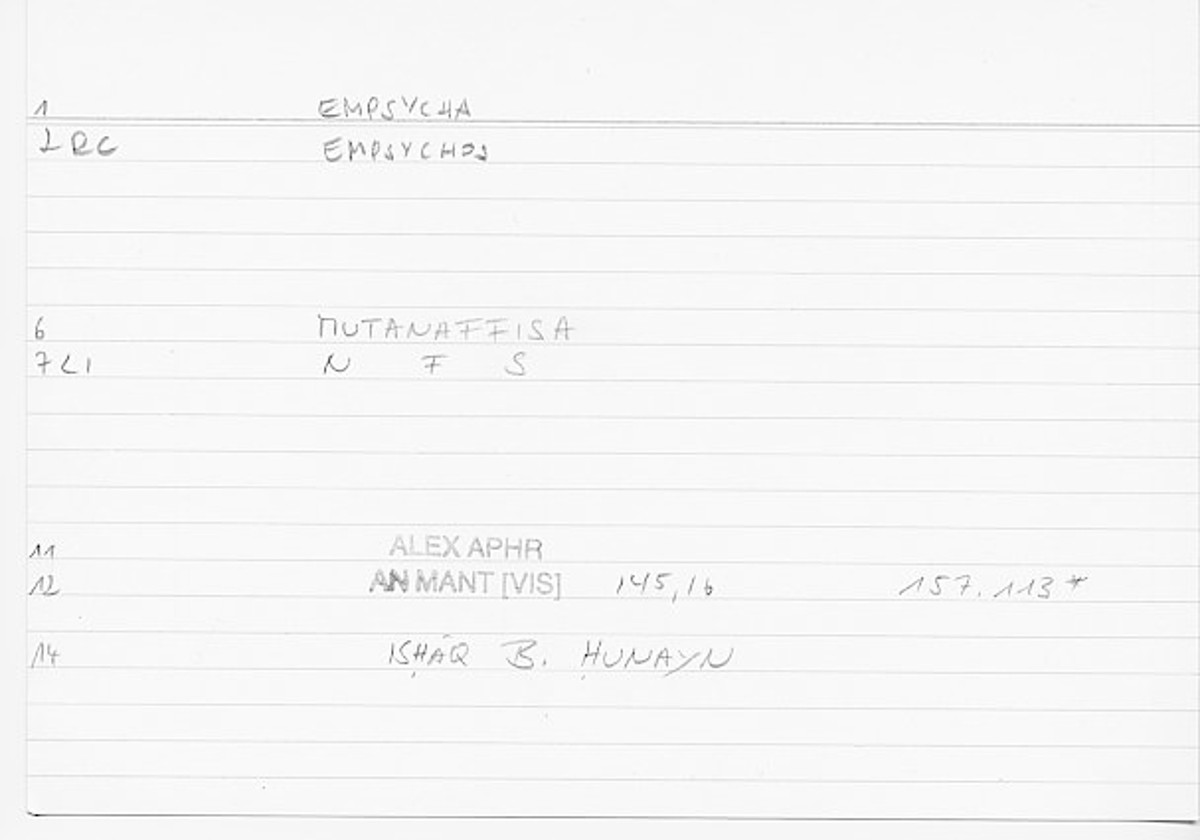 1 EMPSYCHA
2 RC EMPSYCHOS
6 MUTANAFFISA
7 LI N F S
11 ALEX APHR
12 AN MANT [VIS] 145,16 157.113*
14 ISḤĀQ B. ḤUNAYN